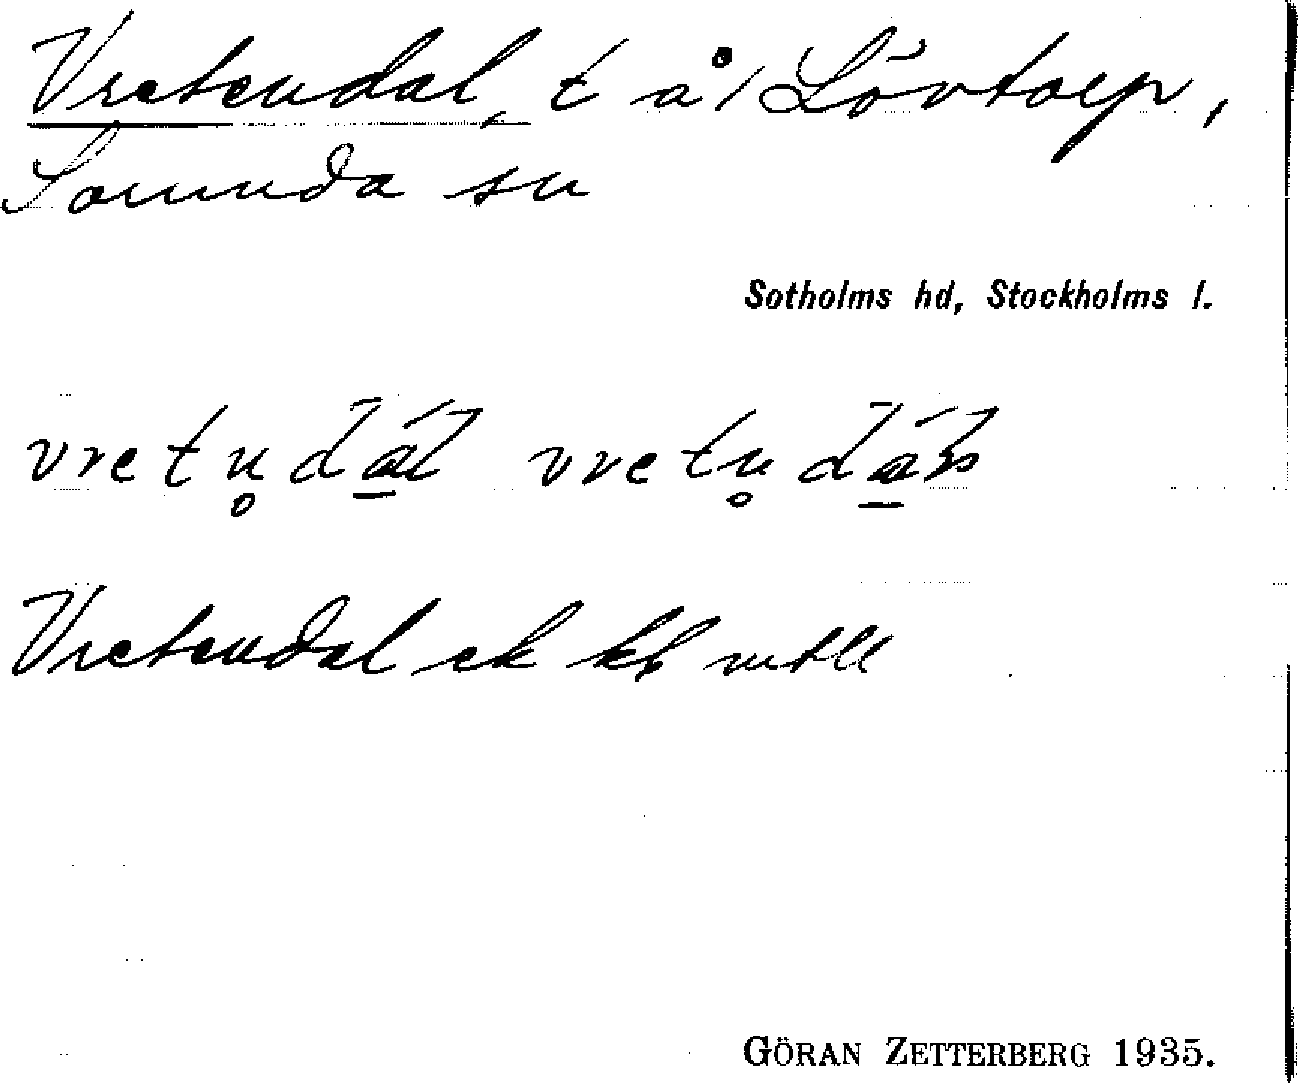 Vretendal, t å/ Lövtorp,
Sorunda sn
Sotholms hd, Stockholms l.
vretn̥da̲l vretn̥da̲
Vretendal ek kb mtll
GÖRAN ZETTERBERG 1935.